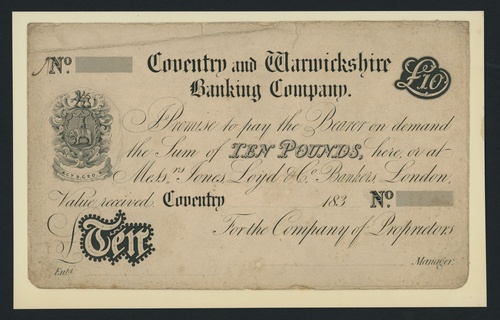 No.
Coventry and Warwickshire
Banking Company.
£10
I Promise to pay the Bearer on demand
the Sum of TEN POUNDS, here, or at
Messrs. Jones Loyd & Co. Bankers, London.
Value received Coventry 183 No.
For the Company of Proprietors
£ Ten
Entd. Manager.